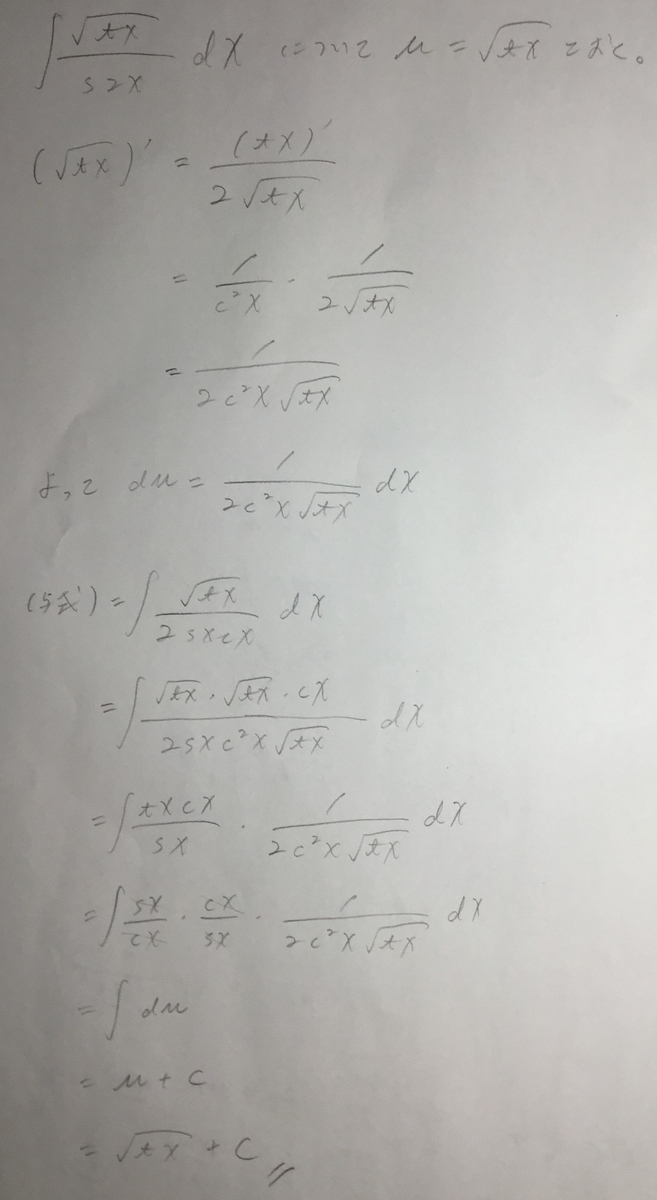 ∫ √tx / s2x dx において u = √tx とおく。
(√tx)' = (tx)' / 2√tx
= 1 / c²x · 1 / 2√tx
= 1 / 2c²x√tx
よって du = 1 / 2c²x√tx dx
(与式) = ∫ √tx / 2sxcx dx
= ∫ √tx · √tx · cx / 2sxc²x√tx dx
= ∫ txcx / sx · 1 / 2c²x√tx dx
= ∫ sx / cx · cx / sx · 1 / 2c²x√tx dx
= ∫ du
= u + c
= √tx + C //